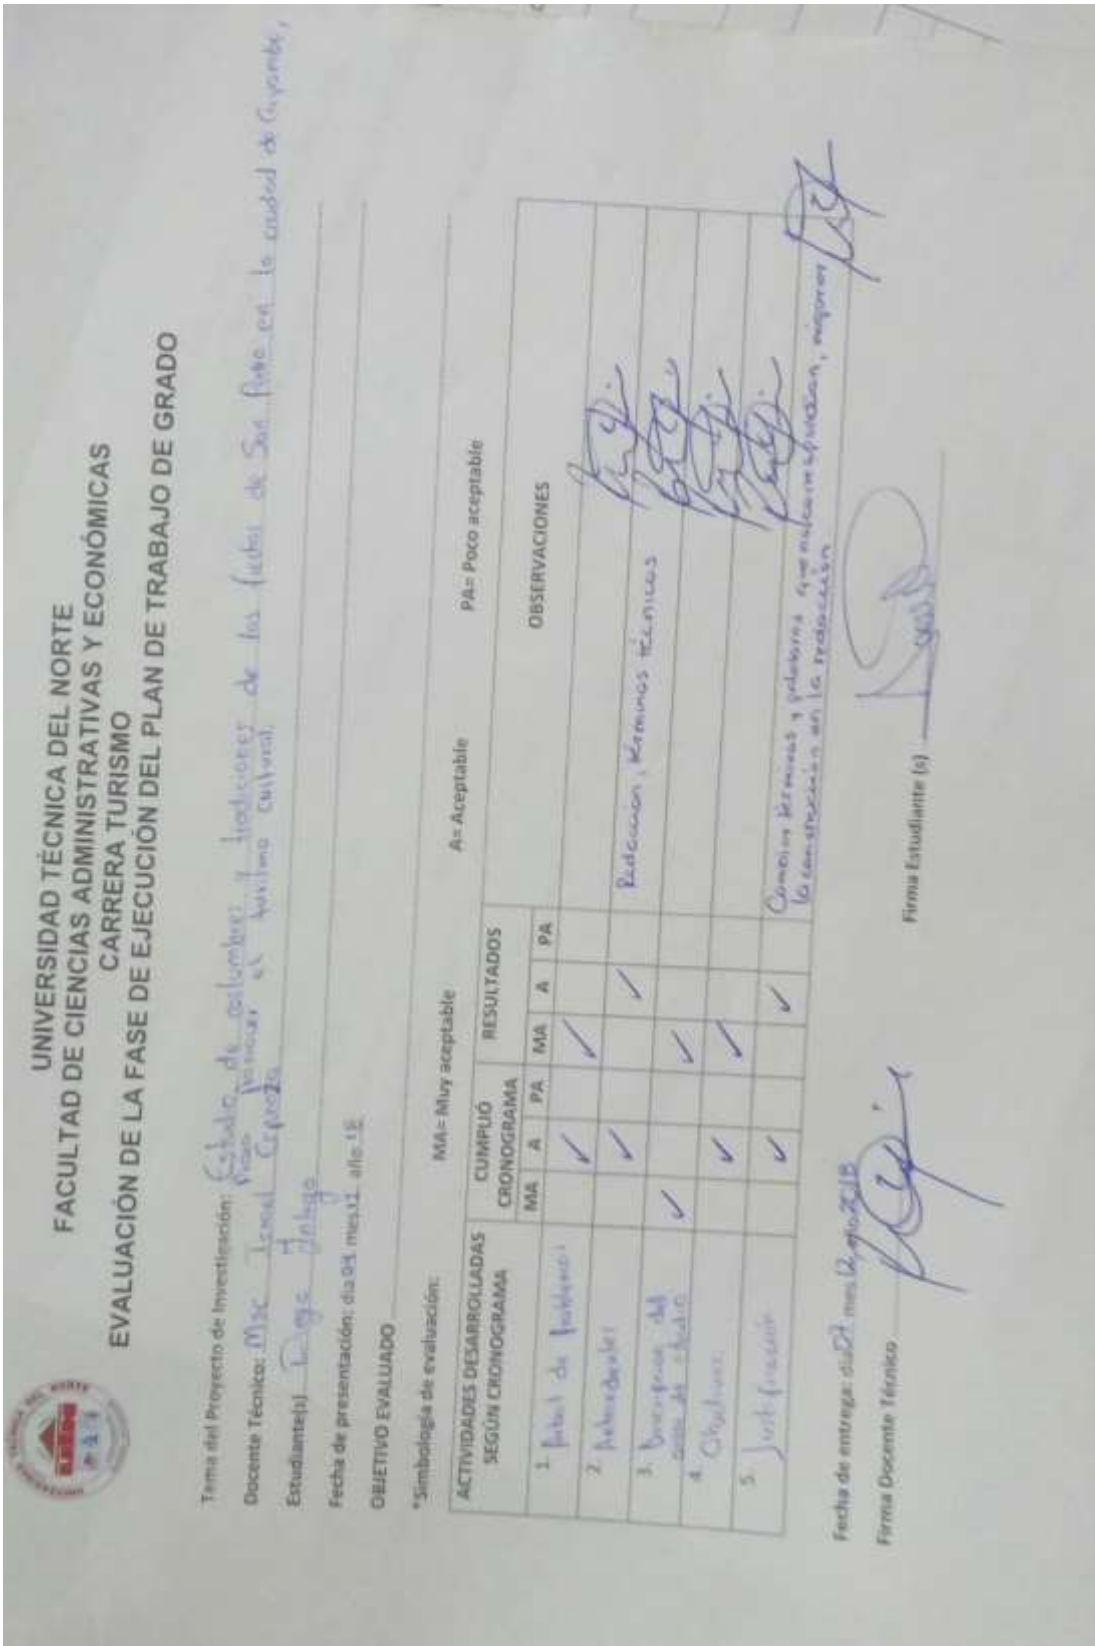 UNIVERSIDAD TÉCNICA DEL NORTE
FACULTAD DE CIENCIAS ADMINISTRATIVAS Y ECONÓMICAS
CARRERA TURISMO
EVALUACIÓN DE LA FASE DE EJECUCIÓN DEL PLAN DE TRABAJO DE GRADO
Tema del Proyecto de Investigación: Estudio de costumbres y tradiciones de las fiestas de San Pedro en la ciudad de Cayambe,
para potenciar el turismo cultural.
Docente Técnico: Msc
Estudiante(s) Diego
Fecha de presentación: día 04 mes 12 año 18
OBJETIVO EVALUADO
*Simbología de evaluación: MA= Muy aceptable A= Aceptable PA= Poco aceptable
ACTIVIDADES DESARROLLADAS SEGÚN CRONOGRAMA CUMPLIÓ CRONOGRAMA RESULTADOS OBSERVACIONES
MA A PA MA A PA
1. Árbol de problemas ✓ ✓
2. Antecedentes ✓ ✓ Redacción, términos técnicos
3. Descripción del ✓ ✓
4. Objetivos ✓ ✓
5. Justificación ✓ ✓ Cambiar términos y palabras que no mejorar
la construcción en la redacción
Fecha de entrega: día 04 mes 12 año 2018
Firma Docente Técnico Firma Estudiante (s)